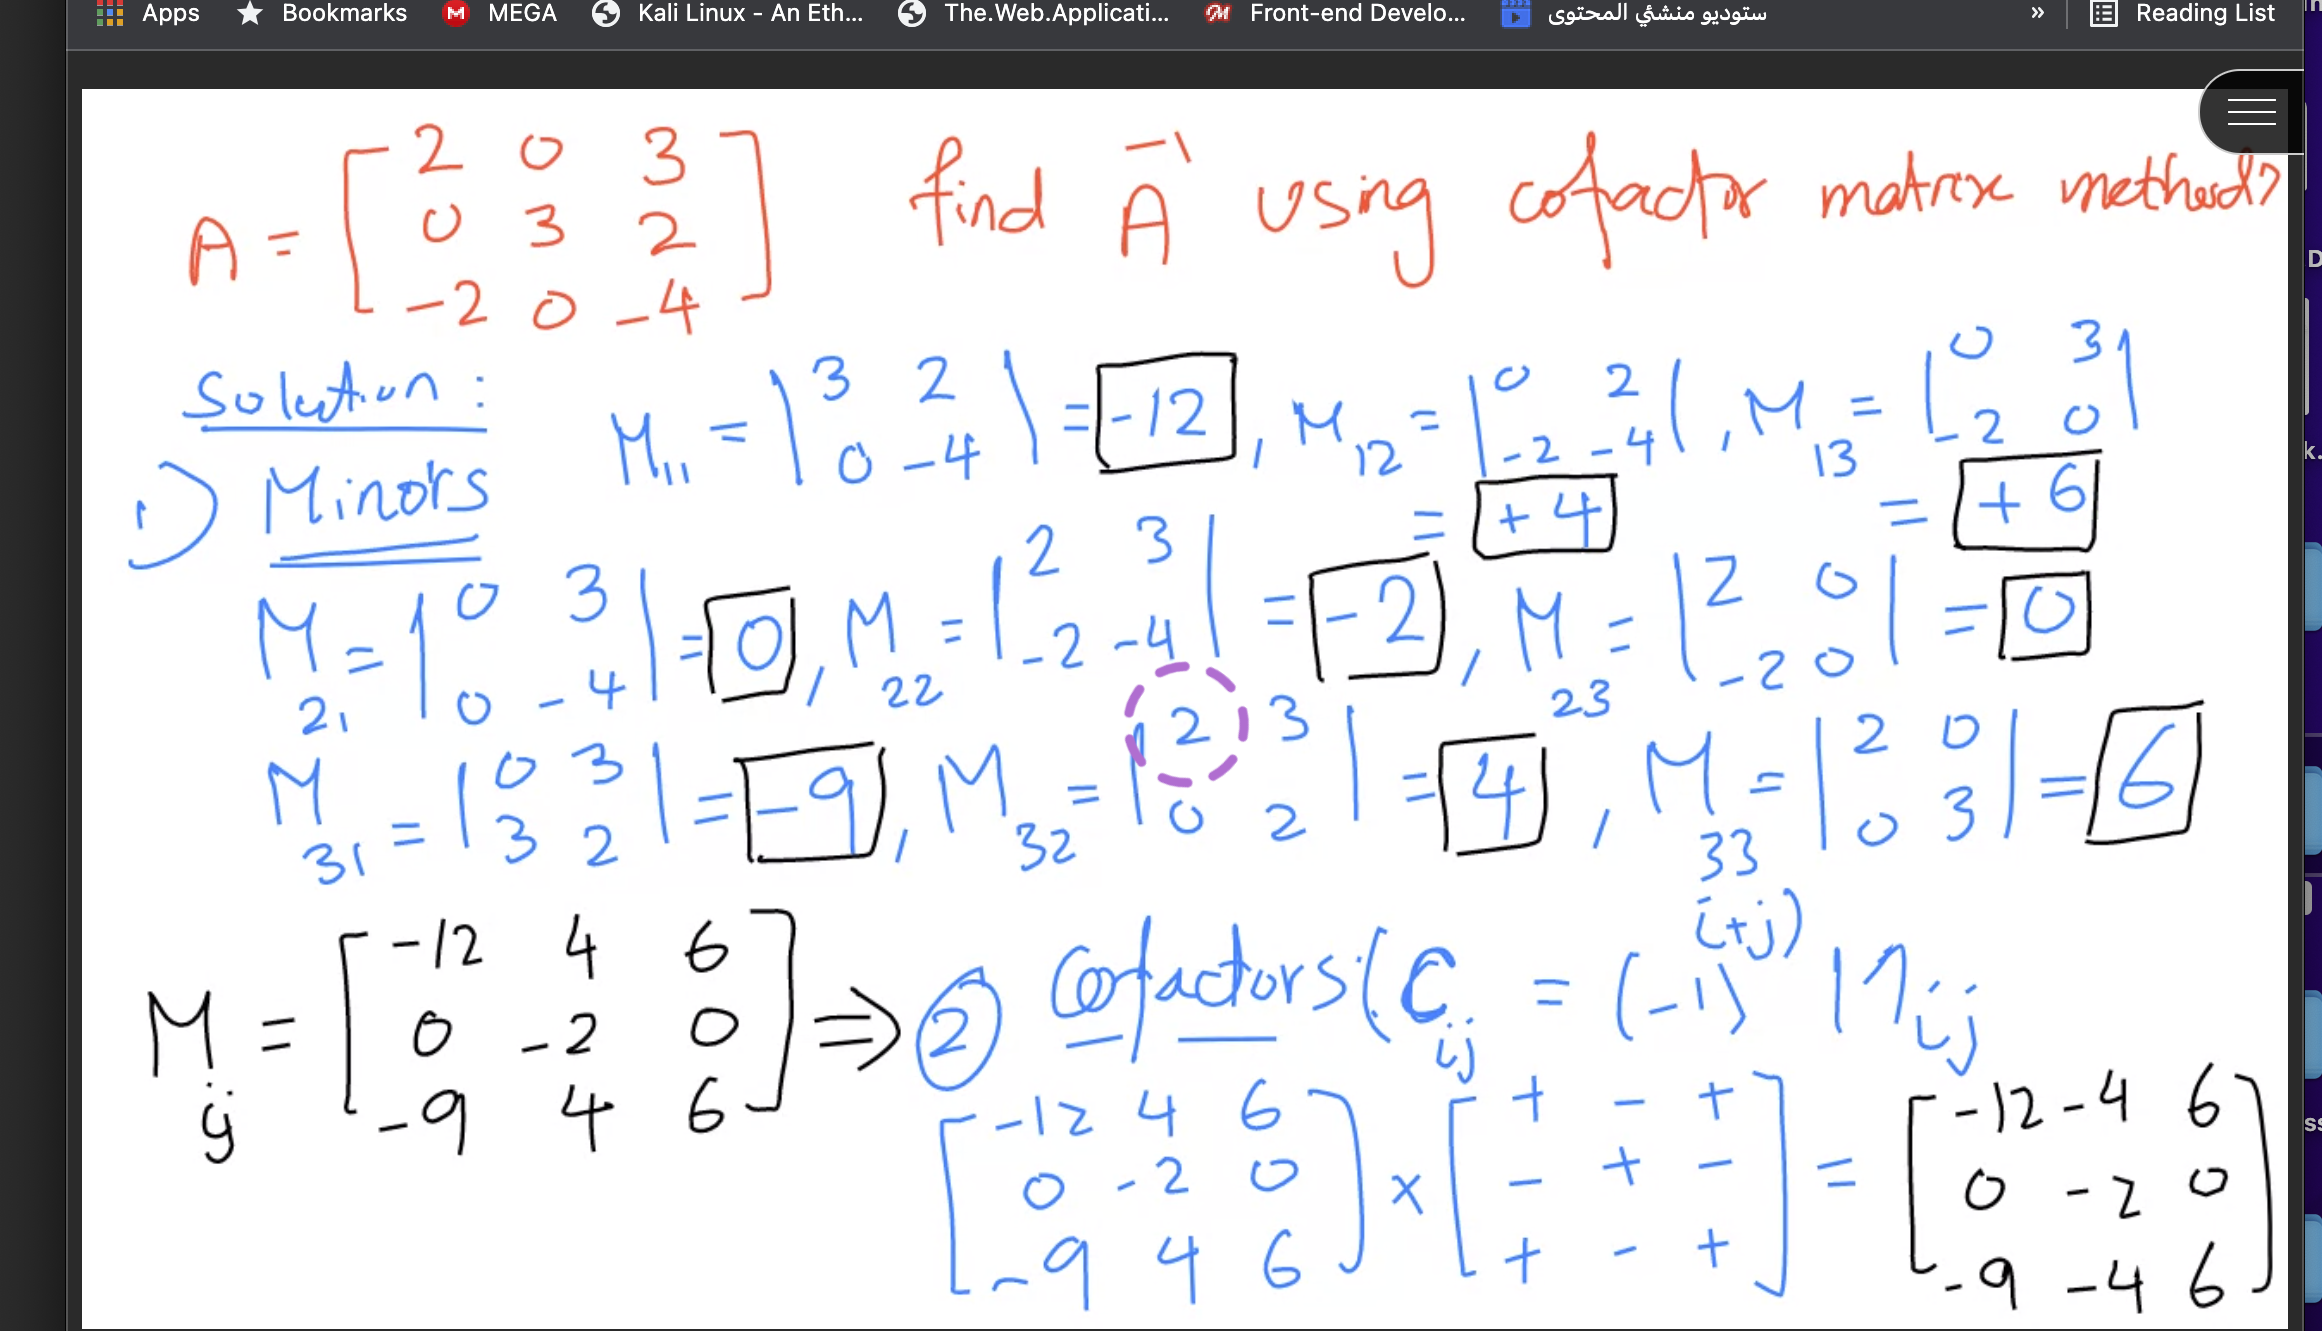 Apps Bookmarks MEGA Kali Linux - An Eth... The.Web.Applicati... Front-end Develo... ستوديو منشئي المحتوى » Reading List
A = [2 0 3
0 3 2
-2 0 -4] find A⁻¹ using cofactor matrix method?
Solution:
1) Minors
M₁₁ = |3 2
0 -4| = -12, M₁₂ = |0 2
-2 -4| = +4, M₁₃ = |0 3
-2 0| = +6
M₂₁ = |0 3
0 -4| = 0, M₂₂ = |2 3
-2 -4| = -2, M₂₃ = |2 0
-2 0| = 0
M₃₁ = |0 3
3 2| = -9, M₃₂ = |2 3
0 2| = 4, M₃₃ = |2 0
0 3| = 6
Mij = [-12 4 6
0 -2 0
-9 4 6] ⇒ 2 Cofactors (Cij = (-1)^(i+j) Mij
[-12 4 6
0 -2 0
-9 4 6] × [+ - +
- + -
+ - +] = [-12 -4 6
0 -2 0
-9 -4 6]